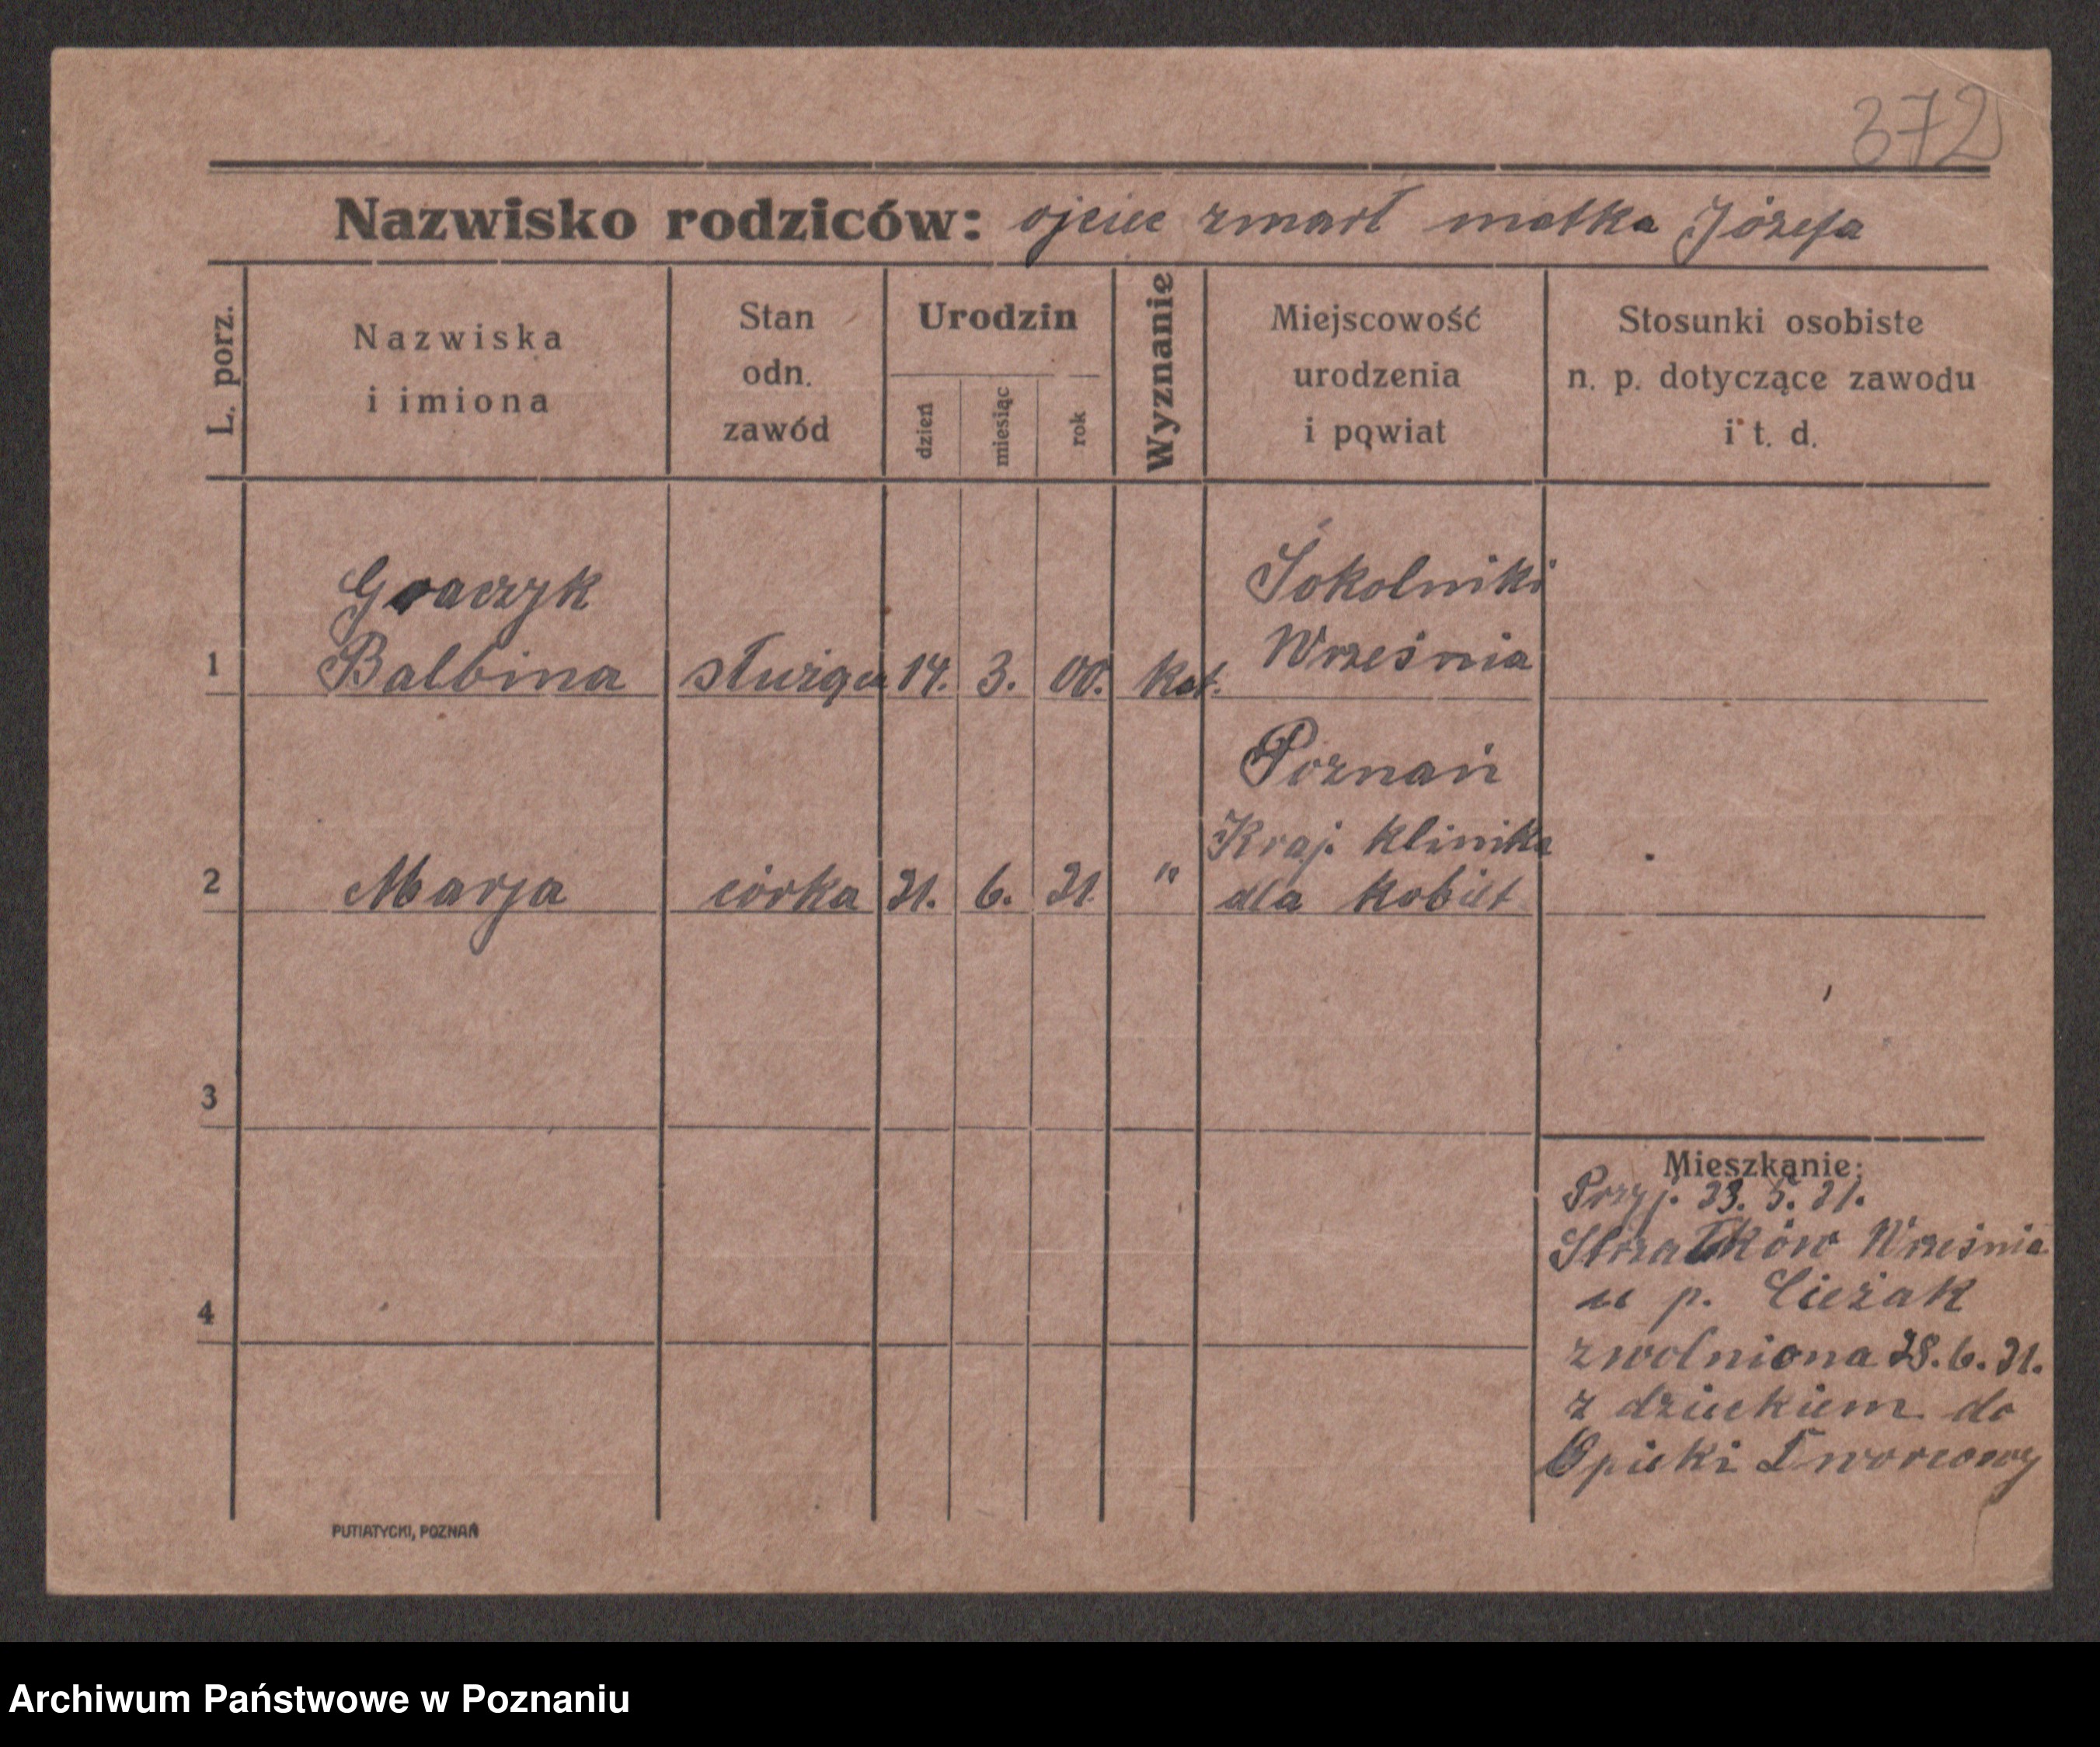 372
Nazwisko rodziców: ojciec zmarł matka Józefa
L. porz.
Nazwiska
i imiona
Stan
odn.
zawód
Urodzin
dzień
miesiąc
rok
Wyznanie
Miejscowość
urodzenia
i powiat
Stosunki osobiste
n. p. dotyczące zawodu
i t. d.
1
Graczyk
Balbina
służąca
14. 3. 00.
kat.
Sokolniki
Września
2
Marja
córka
21. 6. 21.
"
Poznań
Kraj. Klinika
dla kobiet
3
4
Mieszkanie:
Przyj. 23. 5. 21.
Strzałków Września
u p. Cieżak
zwolniona 28. 6. 21.
z dzieckiem do
Opieki Dworcowej
PUTIATYCKI, POZNAŃ
Archiwum Państwowe w Poznaniu